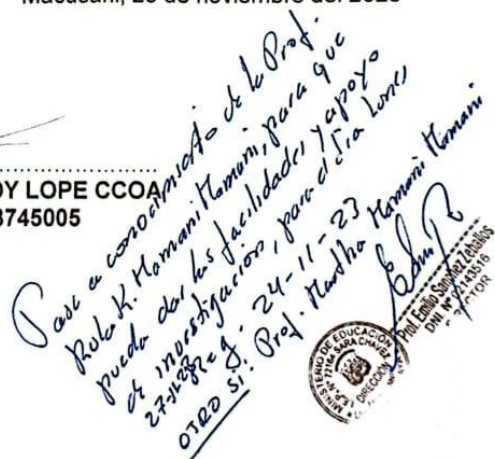 Macusani,        de noviembre del 2023
DY LOPE CCOA
3745005
Pase a conocimiento de la Prof.
K. Mamani Mamani, para que
pueda dar las facilidades y apoyo
de investigación, para el día lunes
27-11-23        24-11-23
OTRO SI: Prof. Martha Mamani Mamani
MINISTERIO DE EDUCACIÓN
SARA CHAVEZ
DIRECCIÓN
Prof. Emilio Sanchez Zeballos
DNI. N°
DIRECTOR